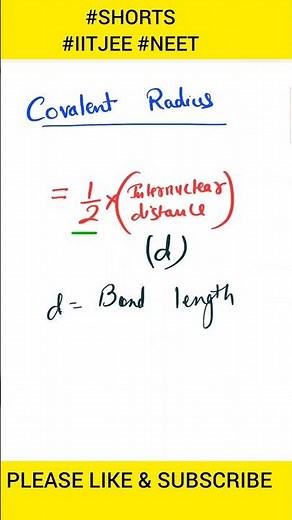 #SHORTS
#IITJEE #NEET
Covalent Radius
= 1/2 × (Internuclear distance)
(d)
d = Bond length
PLEASE LIKE & SUBSCRIBE